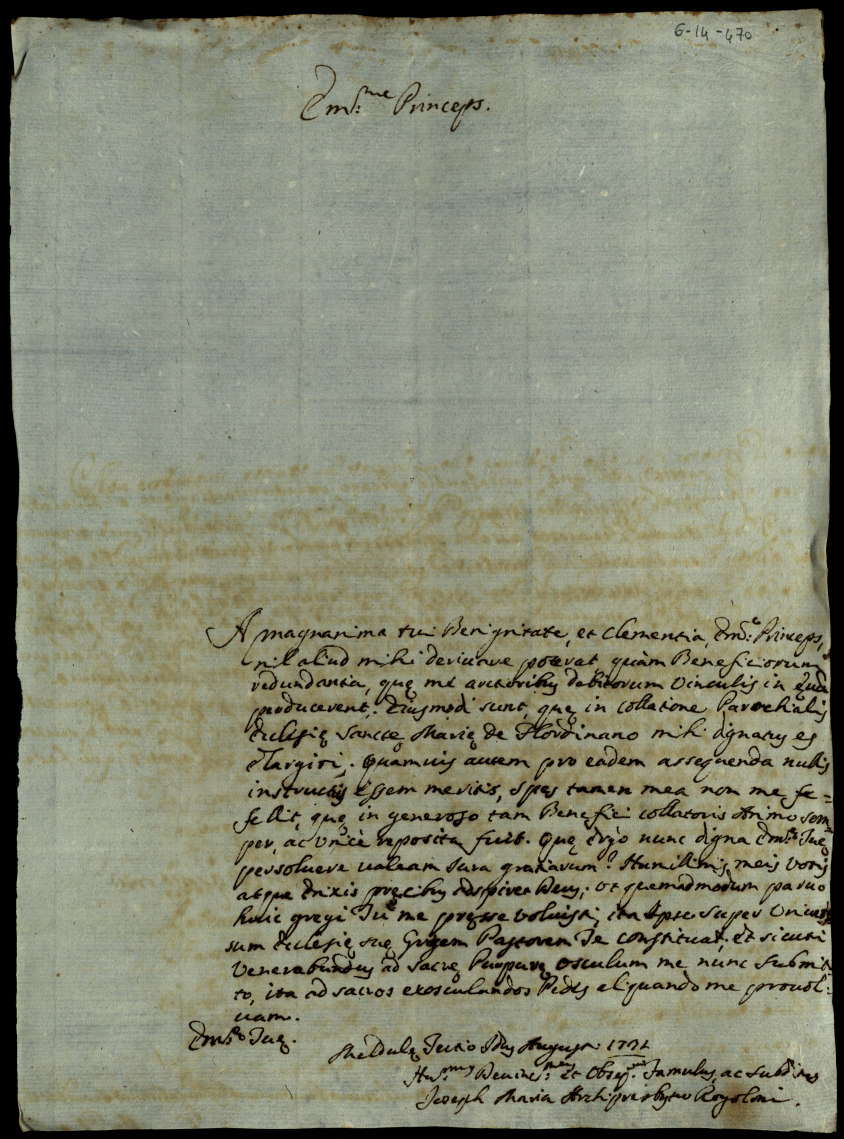 6-14-470
Em.me Princeps.
A magnanima tui Benignitate, et Clementia, Em.e Princeps,
nil aliud mihi derivare poterat, quàm Beneficiorum
redundantia, quę me arctioribus debitorum vinculis in
producerent. Eiusmodi sunt, quę in collatione Parochialis
Ecclesię Sanctę Marię de Flordinano mihi dignatus es
elargiri. Quamuis autem pro eadem assequenda nullis
instructus essem meritis, spes tamen mea non me fe=
fellit, quę in generoso tam Benefici collatoris Animo sem
per, ac unicè reposita fuit. Quę Ergo nunc digna Em.ę Tuę
persoluere ualeam iura gratiarum? Humillimis meis votis
atque Enixis pręcibus Aspiret Deus; ut quemadmodum paruo
huic gregi Tu me pręesse voluisti; ita Ipse super Uniuer
sum Ecclesię suę Gregem Pastorem Te constituat; Et sicuti
Venerabundus ad Sacrę Purpurę osculum me nunc submit
to, ita ad sacros exosculandos Pedes aliquando me prouol=
uam.
Em.ę Tuę.
Meldulę Tertio Idus Augusti 1731
Hu.mus Deuinc.mus et Obseq.mus Famulus, ac Subditus
Joseph Maria Archipresbyter